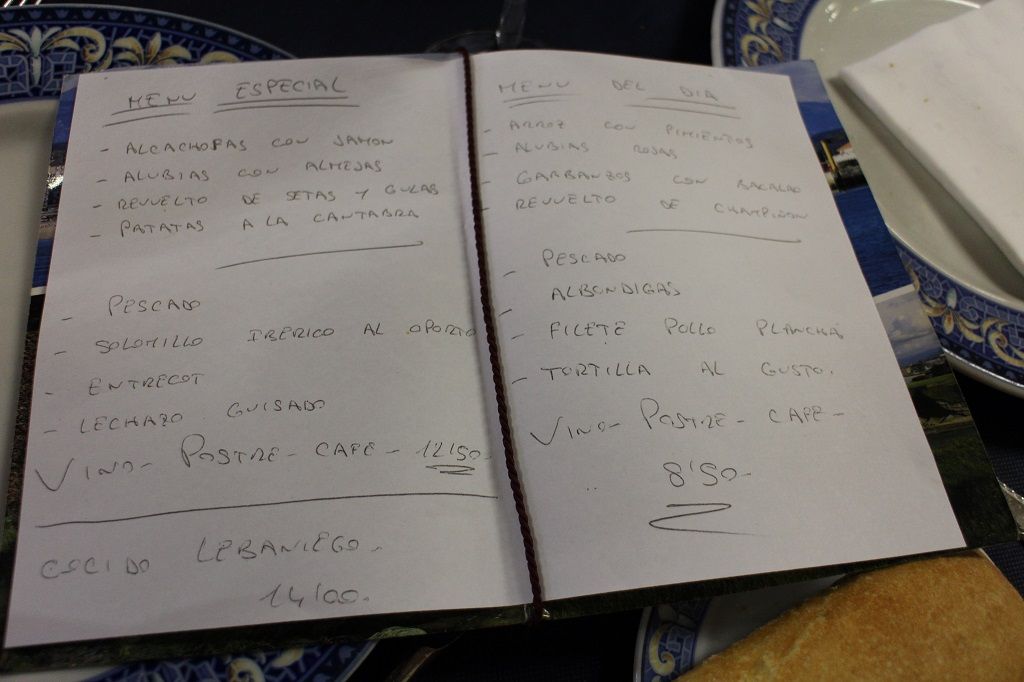 MENU ESPECIAL
- ALCACHOFAS CON JAMON
- ALUBIAS CON ALMEJAS
- REVUELTO DE SETAS Y GULAS
- PATATAS A LA CANTABRA
- PESCADO
- SOLOMILLO IBERICO AL OPORTO
- ENTRECOT
- LECHAZO GUISADO
VINO - POSTRE - CAFE - 12'50-
COCIDO LEBANIEGO -
14'00.
MENU DEL DIA
- ARROZ CON PIMIENTOS
- ALUBIAS ROJAS
- GARBANZOS CON BACALAO
- REVUELTO DE CHAMPIÑON
- PESCADO
- ALBONDIGAS
- FILETE POLLO PLANCHA
- TORTILLA AL GUSTO.
VINO - POSTRE - CAFE -
8'50-